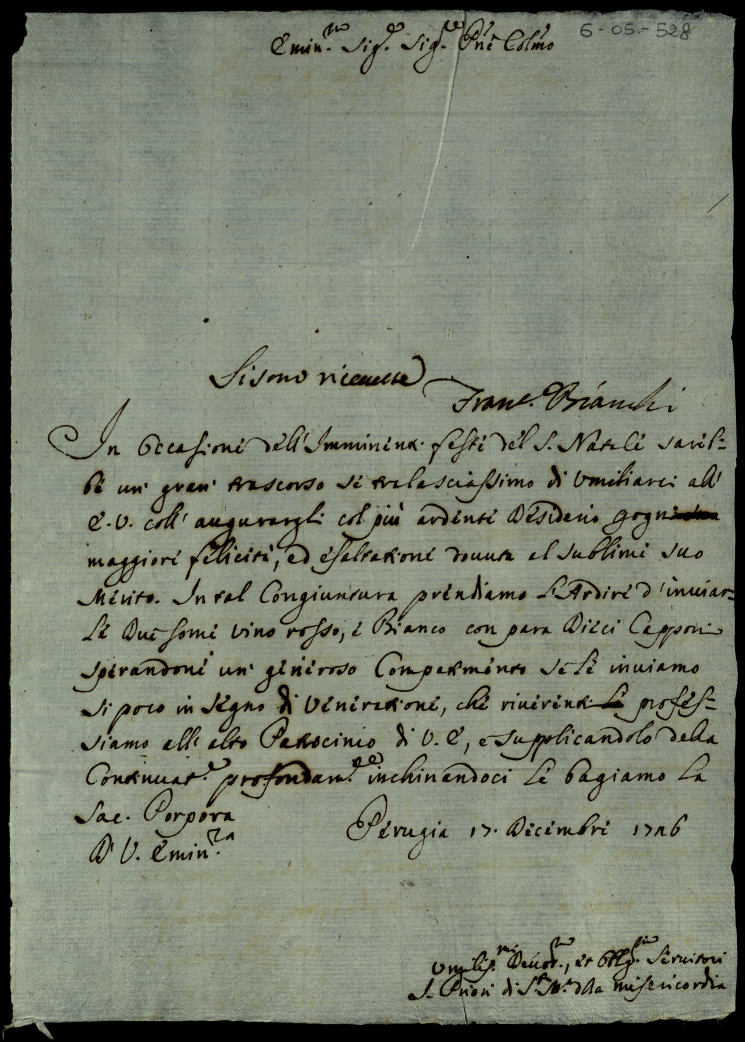 6-05-528
Emin.mo Sig.re Sig.re Pne Colmo
Si sono ricevute
Fran.co Bianchi
In Occasione dell' Imminenti feste del S. Natale sareb-
be un' gran' trascorso se tralasciassimo di Umiliarci all'
E.V. coll' augurargli col più ardente Desiderio ogni
maggiore felicità, ed esaltazione dovuta al sublime suo
Merito. In tal Congiuntura prendiamo l'Ardire d'inviar-
Le Due some vino rosso, e Bianco con para Dieci Capponi
sperandone un' generoso Compatimento se le inviamo
si poco in segno di Venerazione, che riverenti profes-
siamo all' alto Patrocinio di V.E., e supplicandolo della
Continuat.e profondam.te inchinandoci le bagiamo la
Sac. Porpora
D' V. Emin.za
Perugia 17. Decembre 1726
Umiliss.mi Devot.mi, et Obblig.mi Servitori
I Priori di S.ta M.a della misericordia